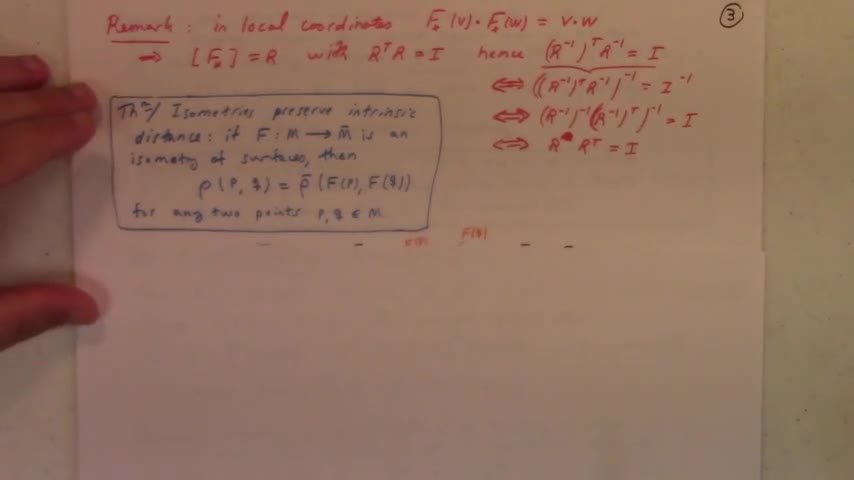 ③
Remark: in local coordinates F_*(v)·F_*(w) = v·w
⇒ [F_*] = R with RᵀR = I hence (R⁻¹)ᵀR⁻¹ = I
⟺ ((R⁻¹)ᵀR⁻¹)⁻¹ = I⁻¹
⟺ (R⁻¹)⁻¹((R⁻¹)ᵀ)⁻¹ = I
⟺ R Rᵀ = I
Thᵐ/ Isometries preserve intrinsic
distance: if F: M → M̄ is an
isometry of surfaces, then
ρ(p, q) = ρ̄(F(p), F(q))
for any two points p, q ∈ M
F(p) F(q)